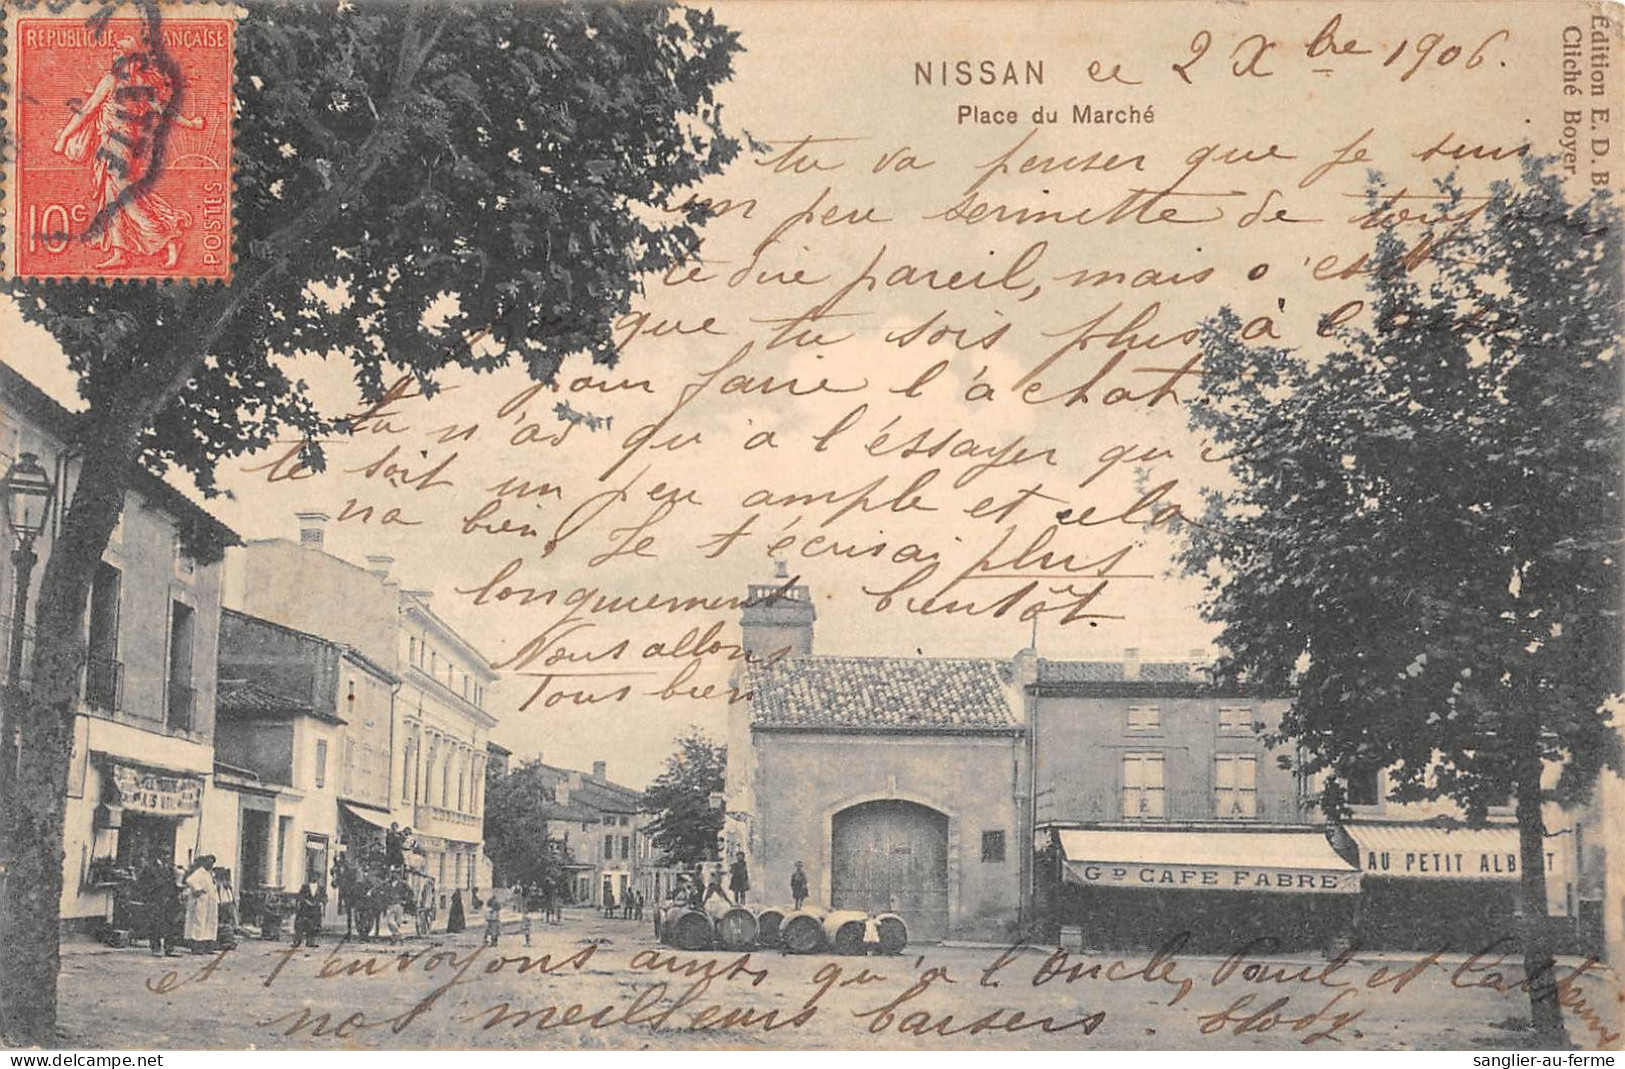 RÉPUBLIQUE FRANÇAISE
10c
POSTES
CETTE
NISSAN
ce 2 Xbre 1906.
Place du Marché
Édition E. D. B.
Cliché Boyer.
tu va penser que je suis
un peu de toujours
te dire pareil, mais c'est
pour que tu sois plus à l'aise
pour faire l'achat.
tu n'as qu'a l'éssayer qu'il
te soit un peu ample et cela
va bien. Je t'écrirai plus
longuement bientôt.
Nous allons
Tous bien
et t'envoyons ainsi qu'a l'Oncle, Paul et
nos meilleurs baisers.
CAFÉ FABRE
GD CAFE FABRE
AU PETIT ALB T
sanglier-au-ferme